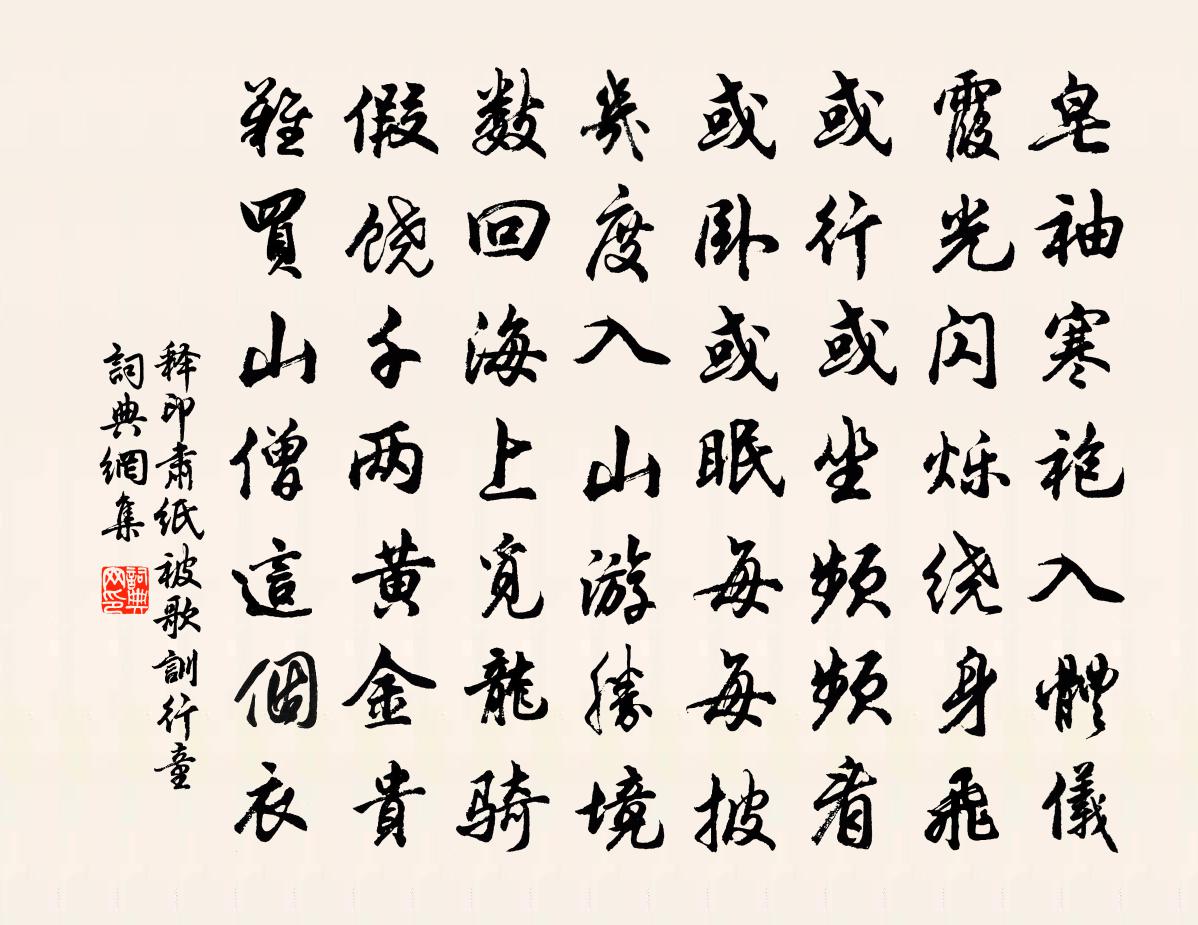 皂袖寒袍入體儀
霞光闪烁绕身飛
或行或坐頻頻看
或卧或眠每每披
幾度入山游勝境
数回海上覓龍骑
假饶千两黄金貴
難買山僧這個衣
释印肃纸被歌訓行童
詞典網集
詞典
网印